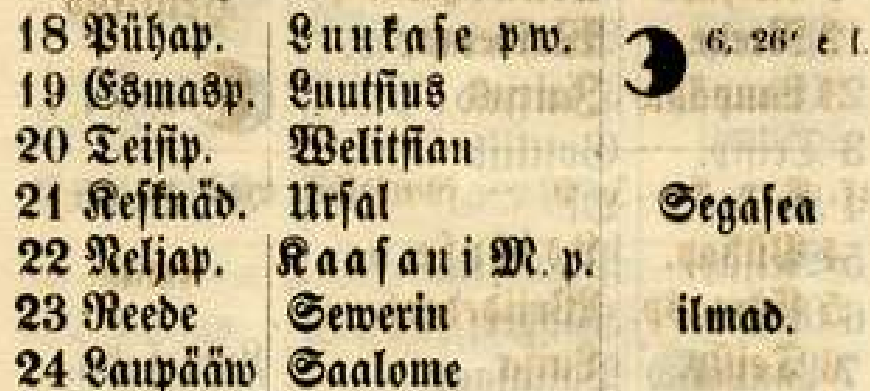 18 Pühap. Luukase pw. 6. 26′ e. l.
19 Esmasp. Luutsius
20 Teisip. Welitsian
21 Kesknäd. Ursal Segasea
22 Neljap. Kaasani M. p.
23 Reede Sewerin ilmad.
24 Laupääw Saalome